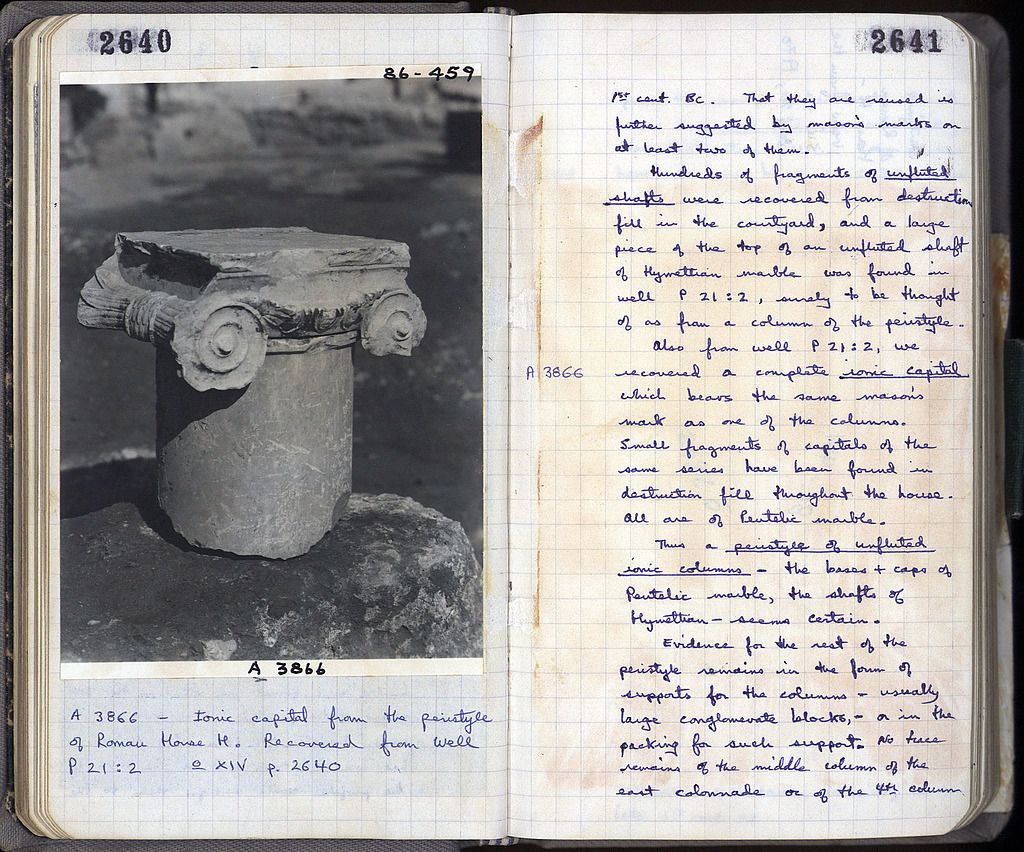 2640
86-459
A 3866
A 3866 – Ionic capital from the peristyle
of Roman House H. Recovered from well
P 21:2 o XIV p. 2640
2641
1st cent. BC. That they are reused is
further suggested by mason's marks on
at least two of them.
Hundreds of fragments of unfluted
shafts were recovered from destruction
fill in the courtyard, and a large
piece of the top of an unfluted shaft
of Hymettian marble was found in
well P 21:2, surely to be thought
of as from a column of the peristyle.
Also from well P 21:2, we
A 3866 recovered a complete ionic capital
which bears the same mason's
mark as one of the columns.
Small fragments of capitals of the
same series have been found in
destruction fill throughout the house.
All are of Pentelic marble.
Thus a peristyle of unfluted
ionic columns – the bases + caps of
Pentelic marble, the shafts of
Hymettian – seems certain.
Evidence for the rest of the
peristyle remains in the form of
supports for the columns – usually
large conglomerate blocks, – or in the
packing for such support. No trace
remains of the middle column of the
east colonnade or of the 4th column